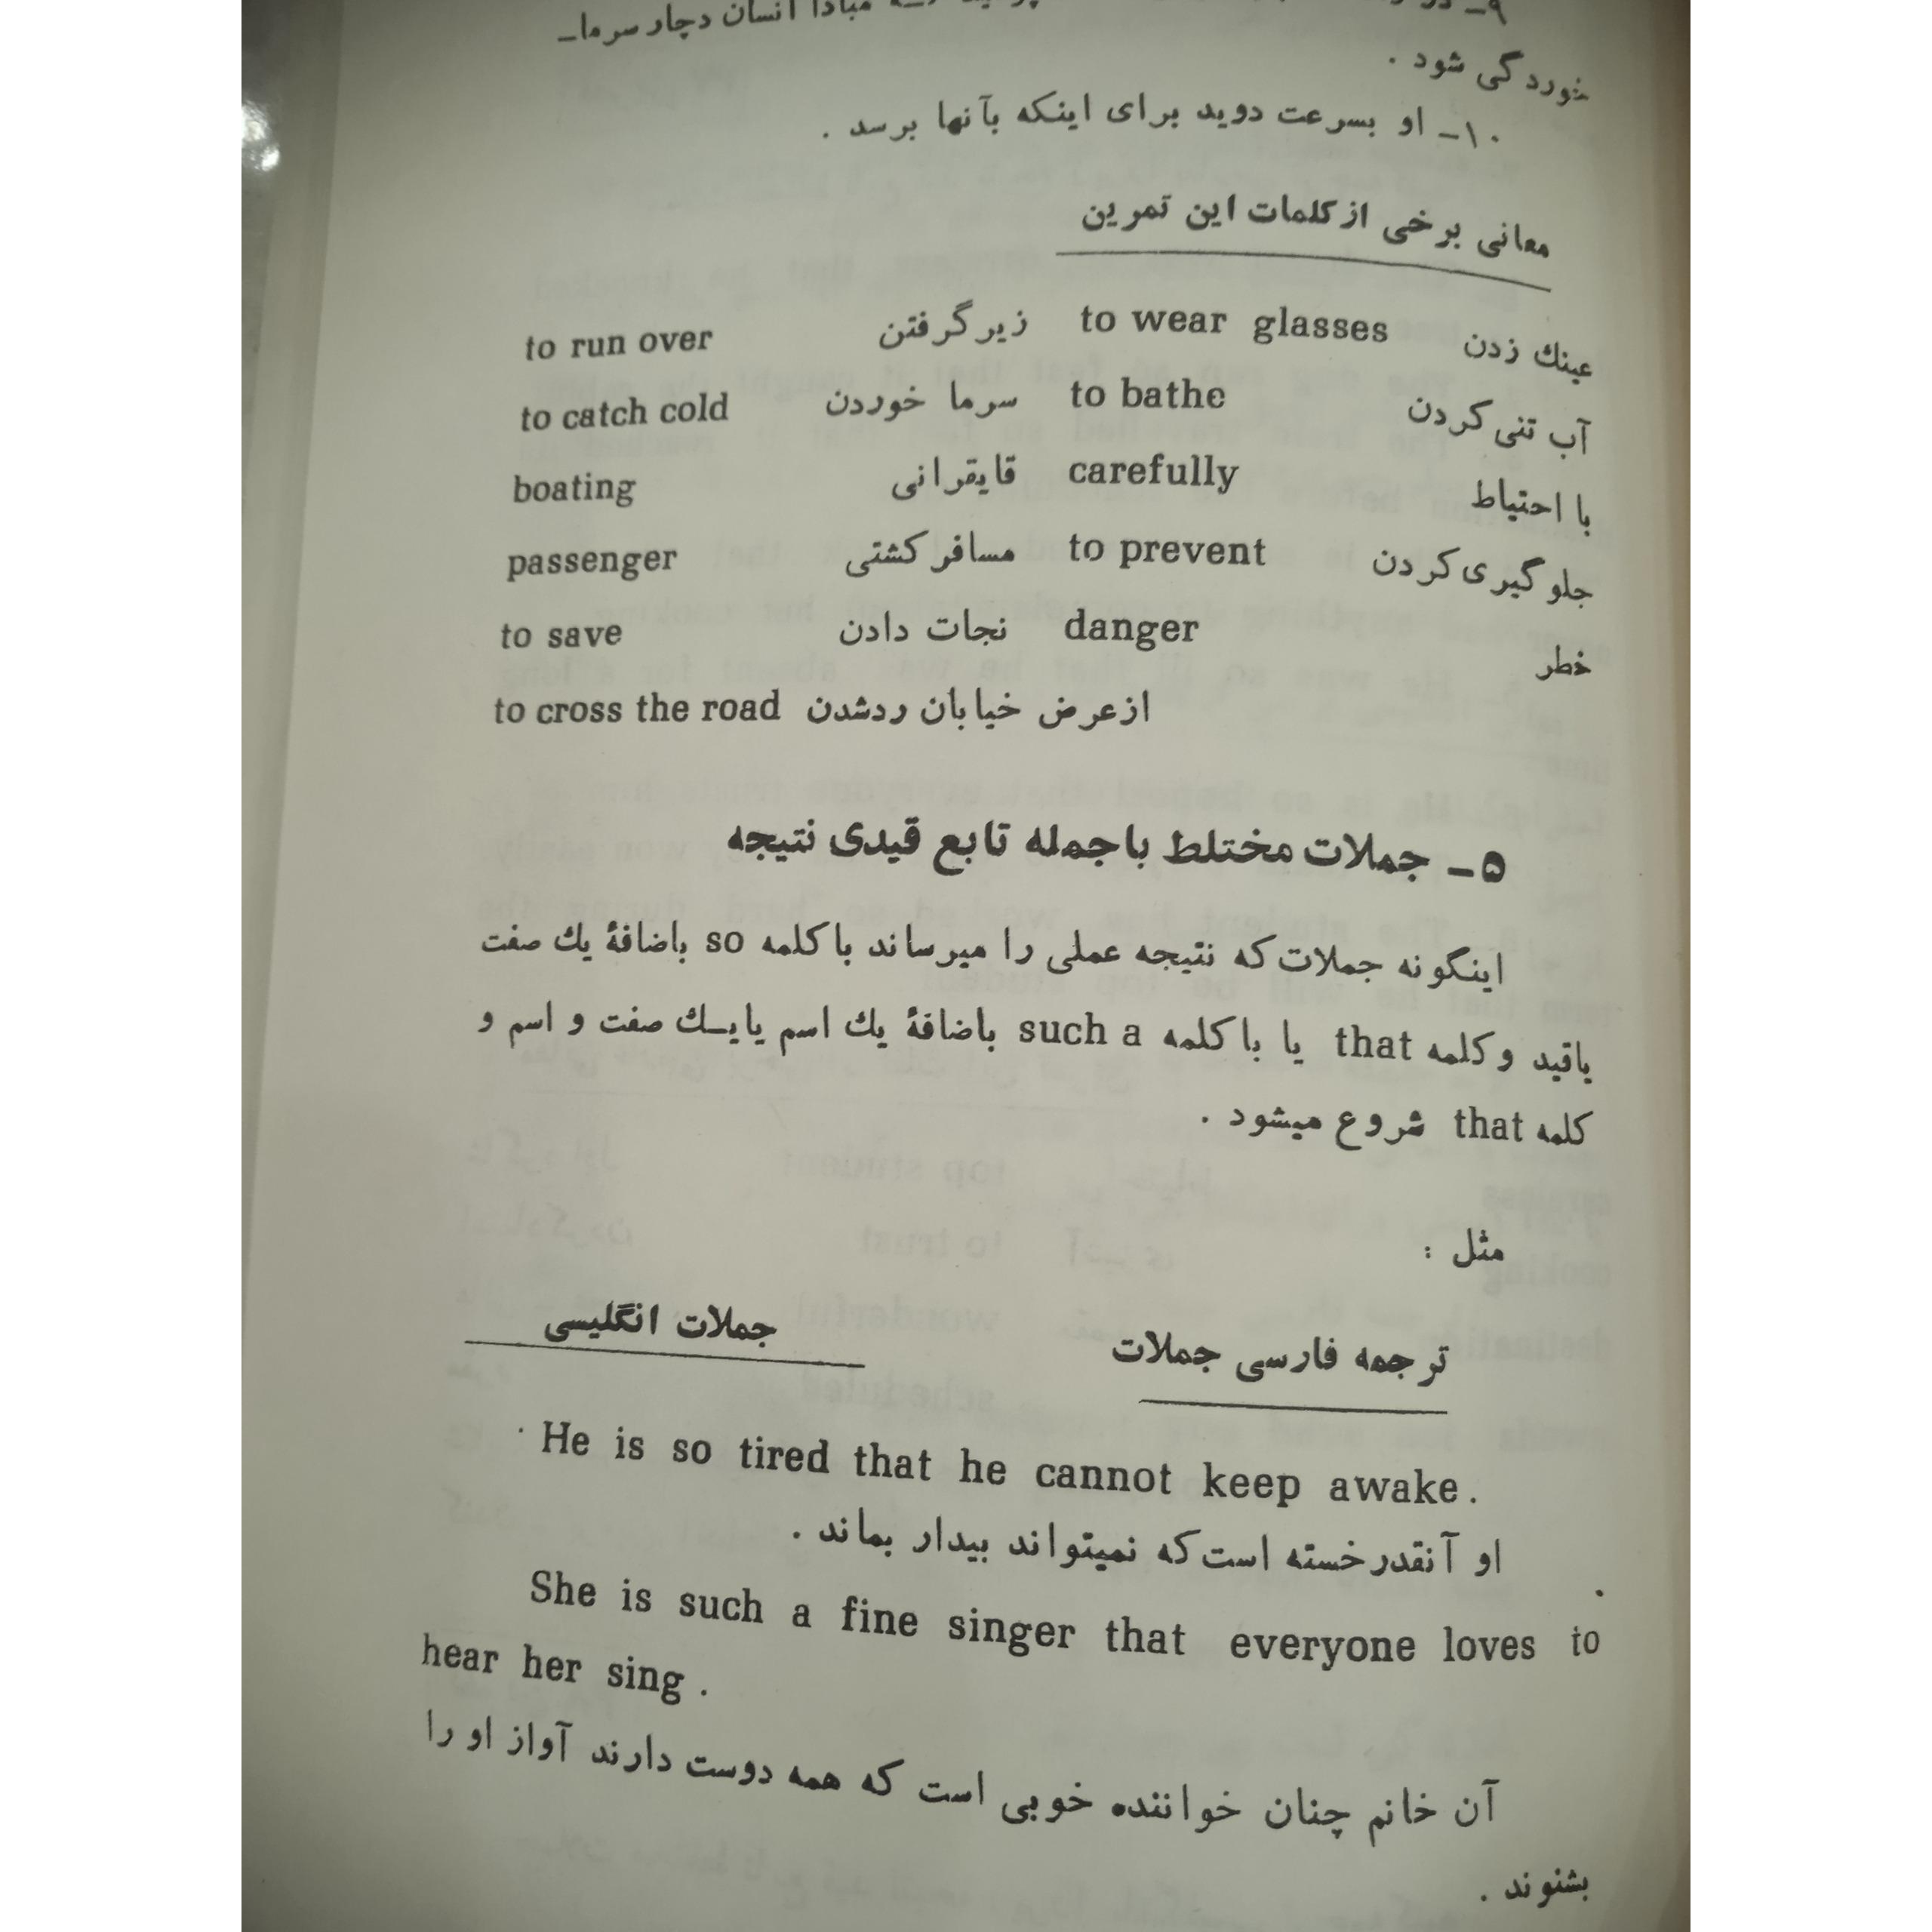 ۹ـ مبادا انسان دچار سرما‌ـ
خوردگی شود .
۱۰ـ او بسرعت دوید برای اینکه بآنها برسد .
معانی برخی از کلمات این تمرین
to run over زیر گرفتن to wear glasses عینك زدن
to catch cold سرما خوردن to bathe آب تنی کردن
boating قایقرانی carefully با احتیاط
passenger مسافر کشتی to prevent جلو گیری کردن
to save نجات دادن danger خطر
to cross the road از عرض خیابان ردشدن
۵ ـ جملات مختلط با جمله تابع قیدی نتیجه
اینگونه جملات که نتیجه عملی را میرساند با کلمه so باضافهٔ یك صفت
یاقید و کلمه that یا با کلمه such a باضافهٔ یك اسم یایـك صفت و اسم و
کلمه that شروع میشود .
مثل :
ترجمه فارسی جملات جملات انگلیسی
He is so tired that he cannot keep awake .
او آنقدر خسته است که نمیتواند بیدار بماند .
She is such a fine singer that everyone loves to
hear her sing .
آن خانم چنان خواننده خوبی است که همه دوست دارند آواز او را
بشنوند .